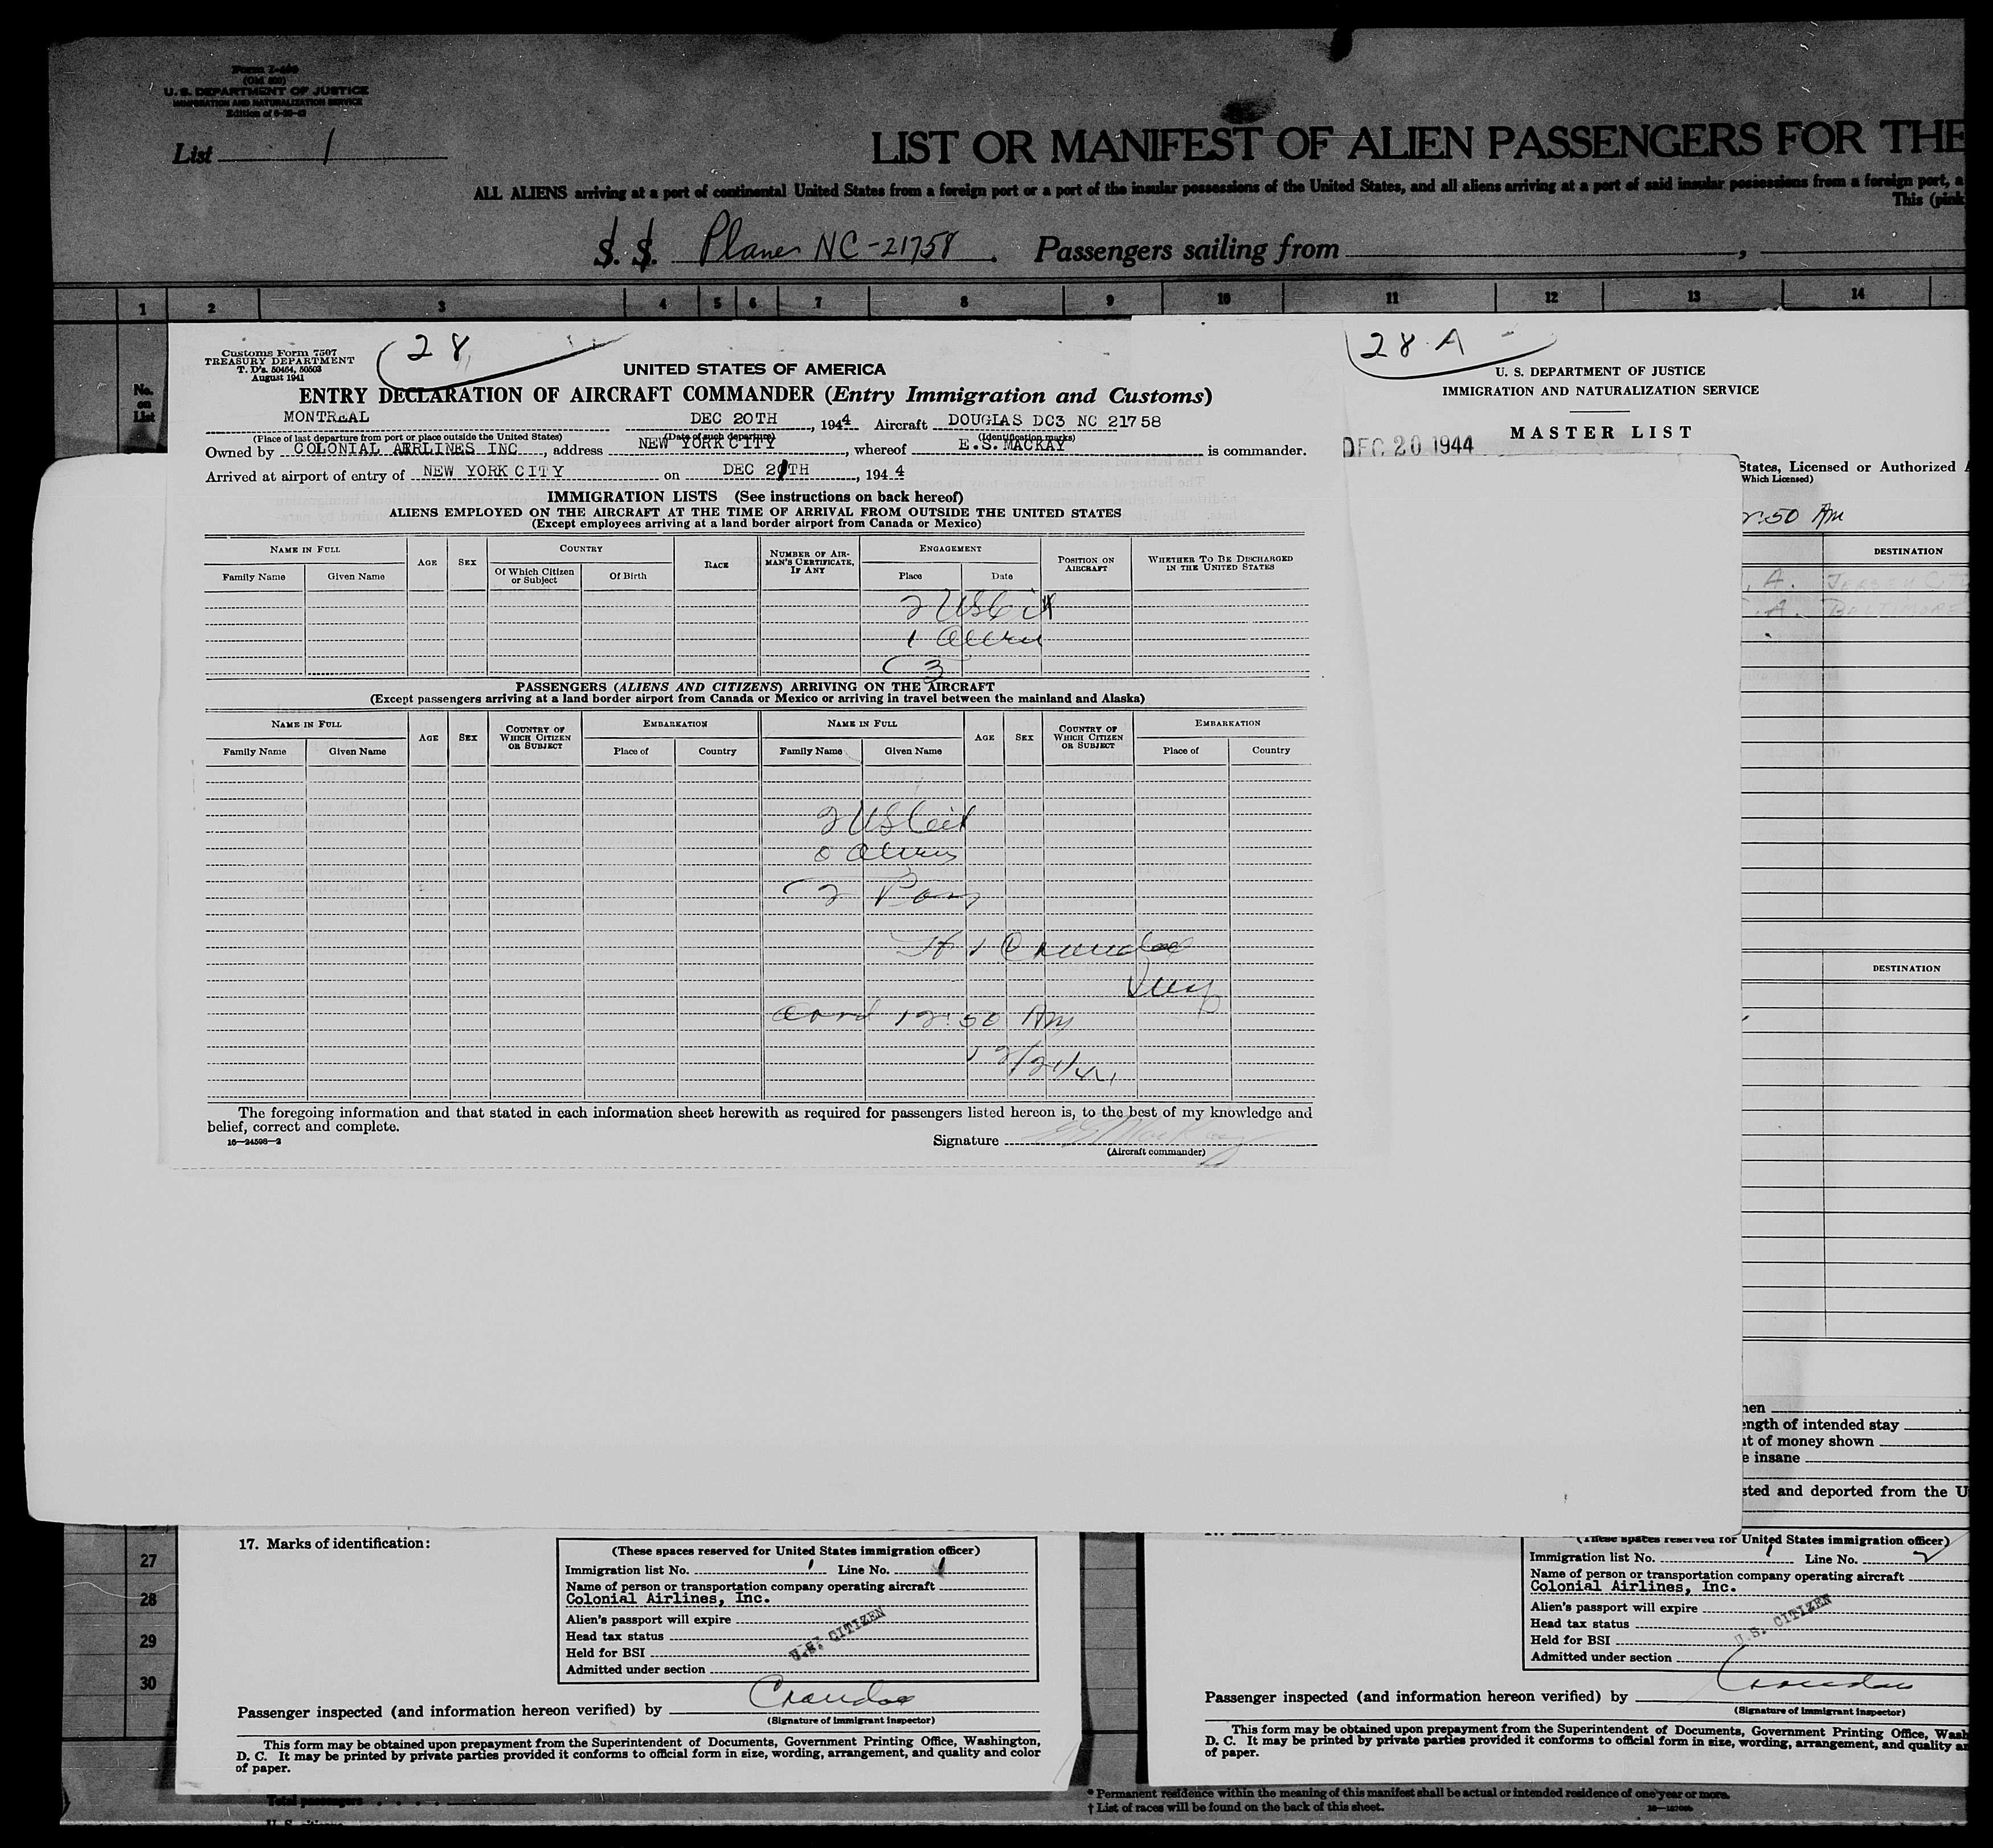 Form I-466
(Old 500)
U. S. DEPARTMENT OF JUSTICE
IMMIGRATION AND NATURALIZATION SERVICE
List 1
LIST OR MANIFEST OF ALIEN PASSENGERS FOR THE
ALL ALIENS arriving at a port of continental United States from a foreign port or a port of the insular possessions of the United States, and all aliens arriving at a port of said insular possessions from a foreign port, a
This (pink
S. S. Plane NC-21758. Passengers sailing from
1 2 3 4 5 6 7 8 9 10 11 12 13 14
No. on List
Customs Form 7507
TREASURY DEPARTMENT
T. D's. 50464, 50503
August 1941
28
UNITED STATES OF AMERICA
ENTRY DECLARATION OF AIRCRAFT COMMANDER (Entry Immigration and Customs)
MONTREAL DEC 20TH, 1944 Aircraft DOUGLAS DC3 NC 21758
(Place of last departure from port or place outside the United States) (Date of such departure) (Identification marks)
Owned by COLONIAL AIRLINES INC, address NEW YORK CITY, whereof E.S. MACKAY is commander.
Arrived at airport of entry of NEW YORK CITY on DEC 21TH, 1944
IMMIGRATION LISTS (See instructions on back hereof)
ALIENS EMPLOYED ON THE AIRCRAFT AT THE TIME OF ARRIVAL FROM OUTSIDE THE UNITED STATES
(Except employees arriving at a land border airport from Canada or Mexico)
NAME IN FULL AGE SEX COUNTRY RACE NUMBER OF AIRMAN'S CERTIFICATE, IF ANY ENGAGEMENT POSITION ON AIRCRAFT WHETHER TO BE DISCHARGED IN THE UNITED STATES
Family Name Given Name Of Which Citizen or Subject Of Birth Place Date
2 US Cit
1 Alien
3
PASSENGERS (ALIENS AND CITIZENS) ARRIVING ON THE AIRCRAFT
(Except passengers arriving at a land border airport from Canada or Mexico or arriving in travel between the mainland and Alaska)
NAME IN FULL AGE SEX COUNTRY OF WHICH CITIZEN OR SUBJECT EMBARKATION NAME IN FULL AGE SEX COUNTRY OF WHICH CITIZEN OR SUBJECT EMBARKATION
Family Name Given Name Place of Country Family Name Given Name Place of Country
2 US Cit
0 Aliens
2 Pass
Insp
Arrd 12:50 AM
12/21/44
The foregoing information and that stated in each information sheet herewith as required for passengers listed hereon is, to the best of my knowledge and
belief, correct and complete.
16—24598-2
Signature E S MacKay
(Aircraft commander)
28 A
U. S. DEPARTMENT OF JUSTICE
IMMIGRATION AND NATURALIZATION SERVICE
MASTER LIST
DEC 20 1944
States, Licensed or Authorized
Which Licensed)
2:50 AM
DESTINATION
. A. JERSEY CITY
. A. BALTIMORE
DESTINATION
hen
ength of intended stay
nt of money shown
e insane
sted and deported from the U
27
28
29
30
17. Marks of identification:
(These spaces reserved for United States immigration officer)
Immigration list No. 1 Line No. 1
Name of person or transportation company operating aircraft
Colonial Airlines, Inc.
Alien's passport will expire
Head tax status
Held for BSI
Admitted under section
U.S. CITIZEN
Passenger inspected (and information hereon verified) by
(Signature of immigrant inspector)
This form may be obtained upon prepayment from the Superintendent of Documents, Government Printing Office, Washington,
D. C. It may be printed by private parties provided it conforms to official form in size, wording, arrangement, and quality and color
of paper.
(These spaces reserved for United States immigration officer)
Immigration list No. 1 Line No. 2
Name of person or transportation company operating aircraft
Colonial Airlines, Inc.
Alien's passport will expire
Head tax status
Held for BSI
Admitted under section
U.S. CITIZEN
Passenger inspected (and information hereon verified) by
(Signature of immigrant inspector)
This form may be obtained upon prepayment from the Superintendent of Documents, Government Printing Office, Wash
D. C. It may be printed by private parties provided it conforms to official form in size, wording, arrangement, and quality an
of paper.
Total passengers
* Permanent residence within the meaning of this manifest shall be actual or intended residence of one year or more.
† List of races will be found on the back of this sheet.